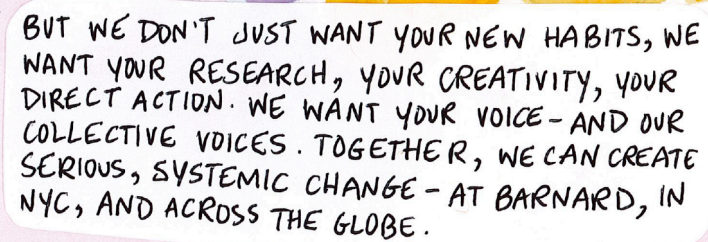 BUT WE DON'T JUST WANT YOUR NEW HABITS, WE
WANT YOUR RESEARCH, YOUR CREATIVITY, YOUR
DIRECT ACTION. WE WANT YOUR VOICE - AND OUR
COLLECTIVE VOICES. TOGETHER, WE CAN CREATE
SERIOUS, SYSTEMIC CHANGE - AT BARNARD, IN
NYC, AND ACROSS THE GLOBE.